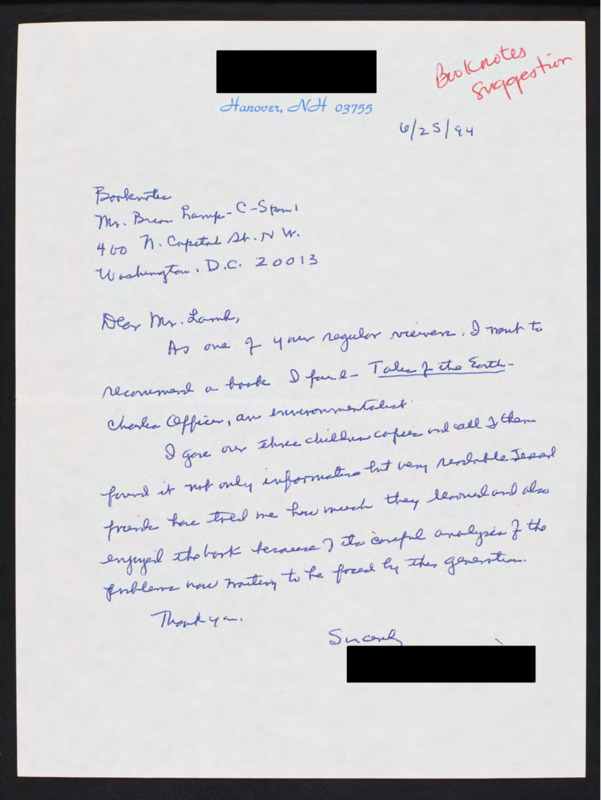 Booknotes
Suggestion
Hanover, NH 03755
6/25/94
Booknotes
Mr. Brian Lamp - C-Span 1
400 N. Capital St. N W.
Washington, D.C. 20013
Dear Mr. Lamb,
As one of your regular viewers. I want to
recommend a book I found - Tales of the Earth -
Charles Officer, an environmentalist.
I gave our three children copies and all of them
found it not only informative but very readable. Several
friends have told me how much they learned and also
enjoyed the book because of its careful analysis of the
problems now waiting to be faced by this generation.
Thank you.
Sincerely